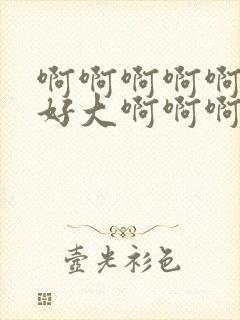 啊啊啊啊啊
好大啊啊啊
壹光衫色